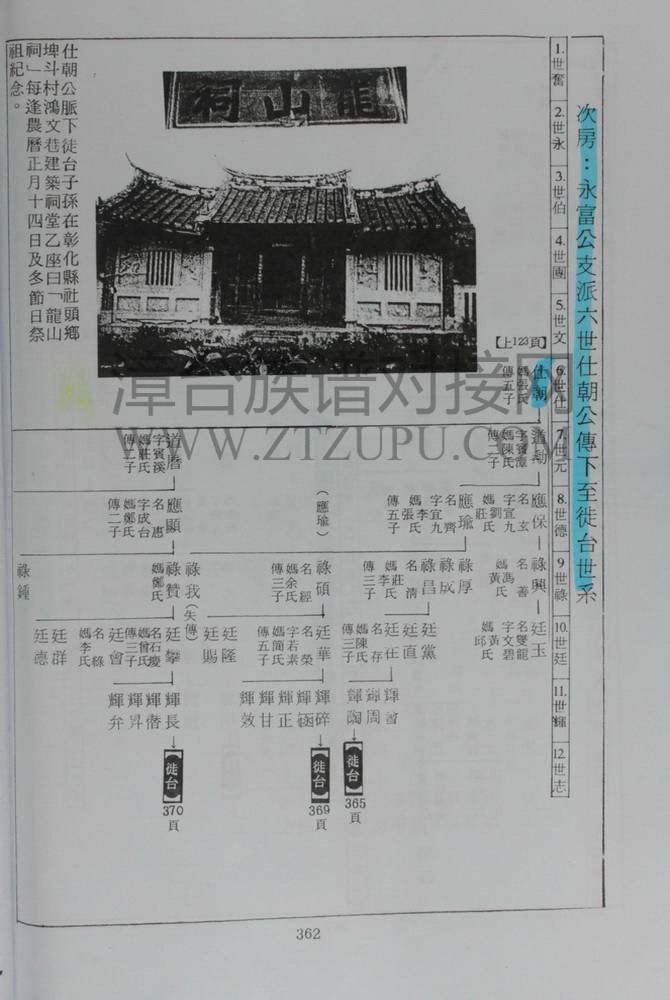 次房：永富公支派六世仕朝公傳下至徙台世系
1.世奮
2.世永
3.世伯
4.世團
5.世文
6.世仕
7.世元
8.世德
9世祿
10.世廷
11.世輝
12.世志
祠山龍
【上123頁】
仕朝
媽張氏
傳五子
仕朝公脈下徙台子孫在彰化縣社頭鄉
埤斗村鴻文巷建築祠堂乙座曰「龍山
祠」每逢農曆正月十四日及冬節日祭
祖紀念。
道勳
字賓潭
媽陳氏
傳二子
道曆
字賓溪
媽莊氏
傳二子
應保
名玄
字宜九
媽劉氏
莊氏
應瑜
名齊
字宜九
媽李氏
張氏
傳五子
（應瑜）
應顯
名惠
字成台
媽鄭氏
傳二子
祿興
名善
媽馮氏
黃氏
祿厚
祿成
祿昌
名清
媽莊氏
李氏
傳三子
祿碩
名經
媽余氏
傳三子
祿我（失傳）
祿贊
媽鄭氏
祿鍾
廷玉
名雙龍
字文碧
媽黃氏
邱氏
廷黨
廷直
廷在
名存
媽陳氏
傳三子
廷華
名榮
字若素
媽簡氏
傳五子
廷隆
廷賜
廷攀
名石慶
媽曾氏
傳三子
廷會
名綠
媽李氏
廷群
廷德
輝會
輝周
輝陶
輝碎
輝函
輝正
輝甘
輝效
輝長
輝借
輝昇
輝弁
【徙台】
365
頁
【徙台】
369
頁
【徙台】
370
頁
漳台族谱对接网
WWW.ZTZUPU.COM
362